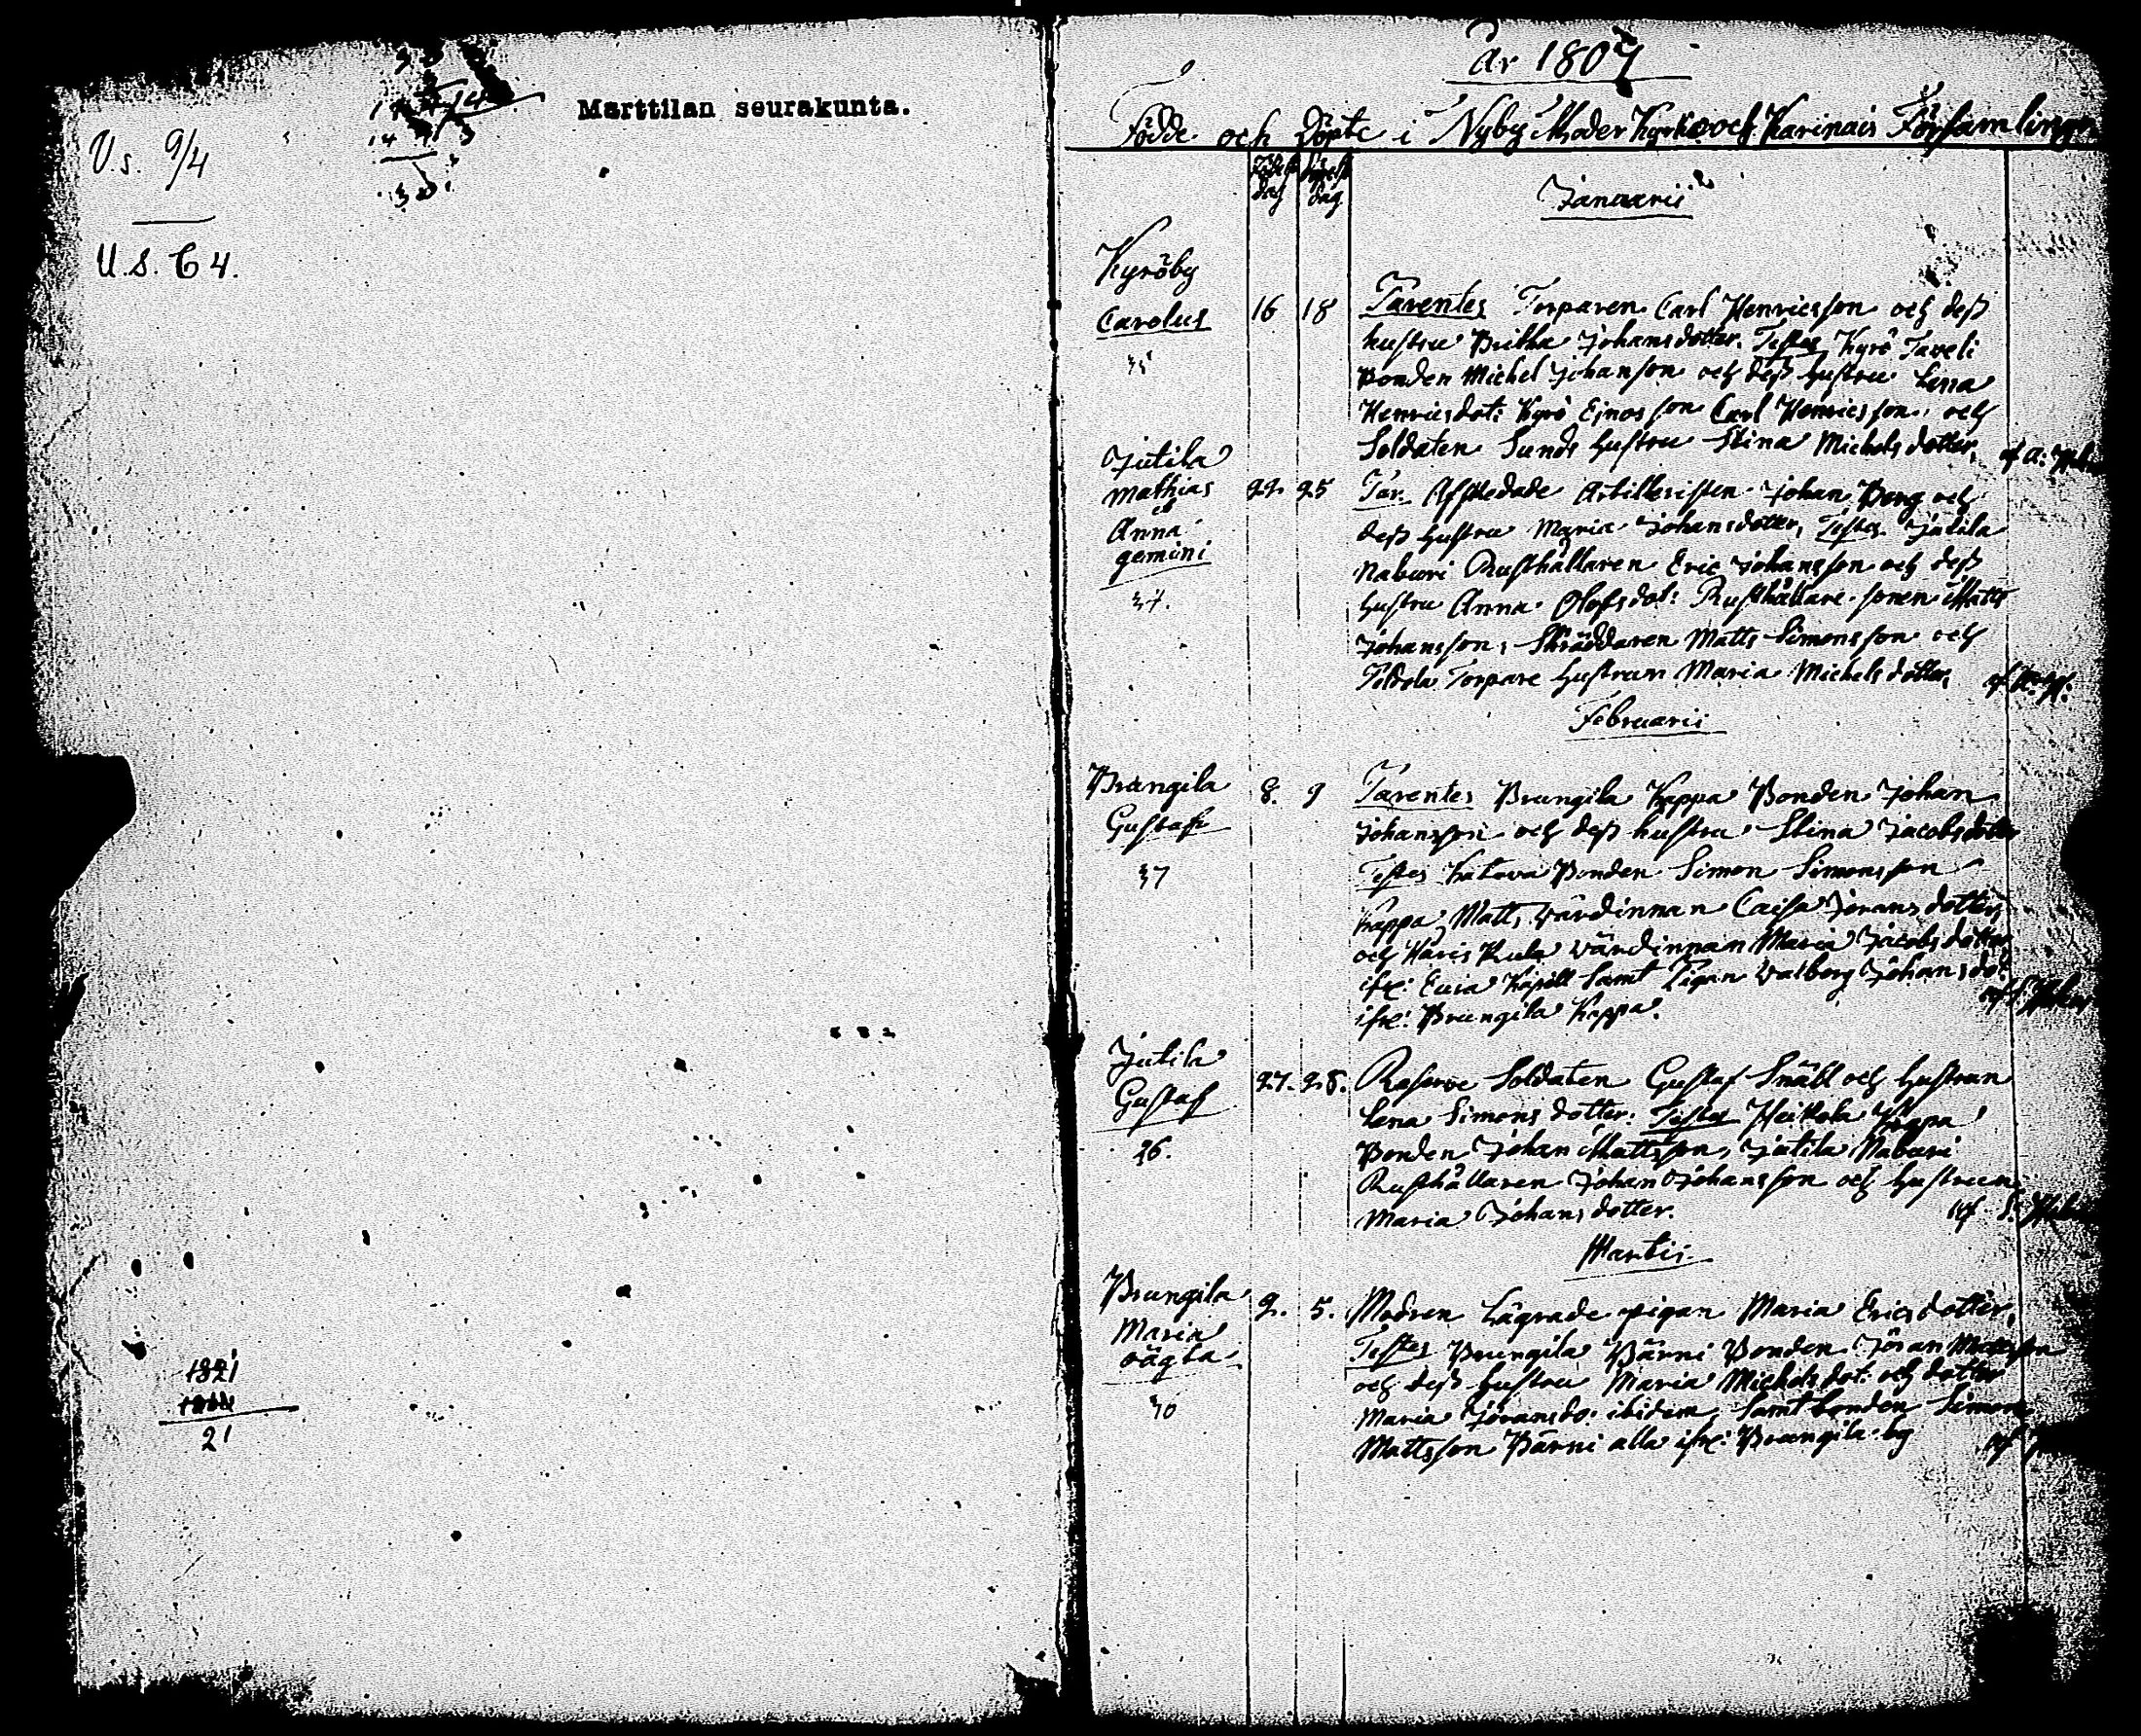 Marttilan seurakunta.
V.s. 9/4
U.s. C 4.
1821
21
År 1807
Födde och Döpte i Nyby Moder Kyrko och Karinais Församlingar
Födelse dag
Döpelse dag
Januarii
Kyröby
Carolus
16 18
Parentes Torparen Carl Henricsson och dess
hustru Britha Johansdotter. Testes Kyrö Taveli
Bonden Michel Johanson och dess hustru Lena
Henricsdot: Kyrö Carl Henricsson och
Soldaten Sunds hustru Stina Michelsdotter,
Jutila
Mathias
et
Anna
gemini
22. 25
Par. Afskedade Artilleristen Johan Berg och
dess hustru Maria Johansdotter, Testes. Jutila
Naburi Rusthållaren Eric Johansson och dess
hustru Anna Olofsdot: Rusthållare sonen Matts
Johansson, Skräddaren Matts Simonsson och
Torpare hustrun Maria Michelsdotter,
Februarii
Prungila
Gustaf
37
8. 9
Parentes Prungila Kappa Bonden Johan
Johansson och dess hustru Stina Jacobsdotter
Testes Katava Bonden Simon Simonsson
Kappa Matts värdinnan Caisa Joransdotter,
och värdinnan Maria Jacobsdotter
ifr: Eura Kapell samt Pigan Valborg Johansdo:
ifr: Prungila Kappa.
Jutila
Gustaf
26.
27. 28.
Reserve Soldaten Gustaf Snäll och hustrun
Lena Simonsdotter. Testes Heikola
Bonden Johan Mattsson, Jutila Naburi
Rusthållaren Johan Johansson och hustrun
Maria Johansdotter.
Martii
Prungila
Maria
oägta
30
2. 5.
Modren Lägrade pigan Maria Ericsdotter,
Testes Prungila Pärni Bonden Jöran Mattsson
och dess hustru Maria Michelsdot: och dotter
Maria Jöransdo: ibidem, samt bonden Simon
Mattsson Pärni alla ifr: Prungila by